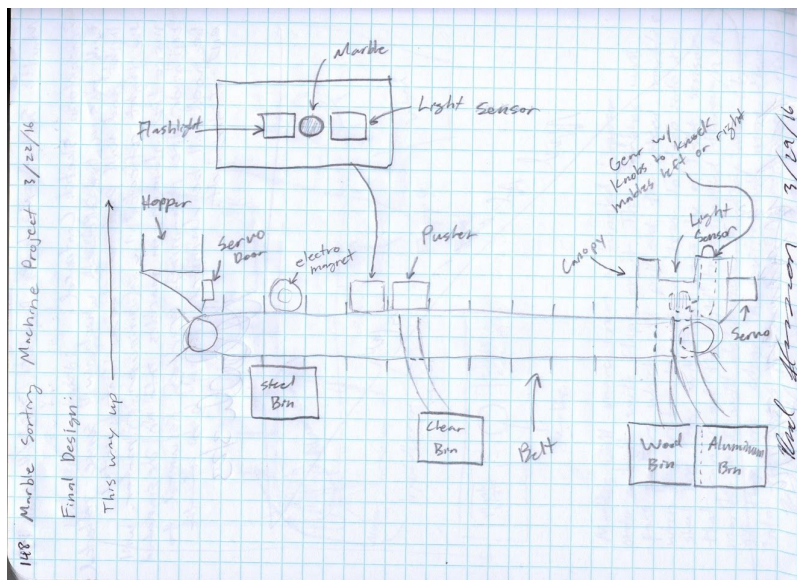 148 Marble Sorting Machine Project 3/22/16
Final Design:
This way up
Marble
Flashlight
Light Sensor
Hopper
Servo
Door
electro
magnet
Pusher
Gear w/
knobs to knock
marbles left or right
Canopy
Light
Sensor
Servo
Steel
Bin
Clear
Bin
Belt
Wood
Bin
Aluminum
Bin
3/22/16